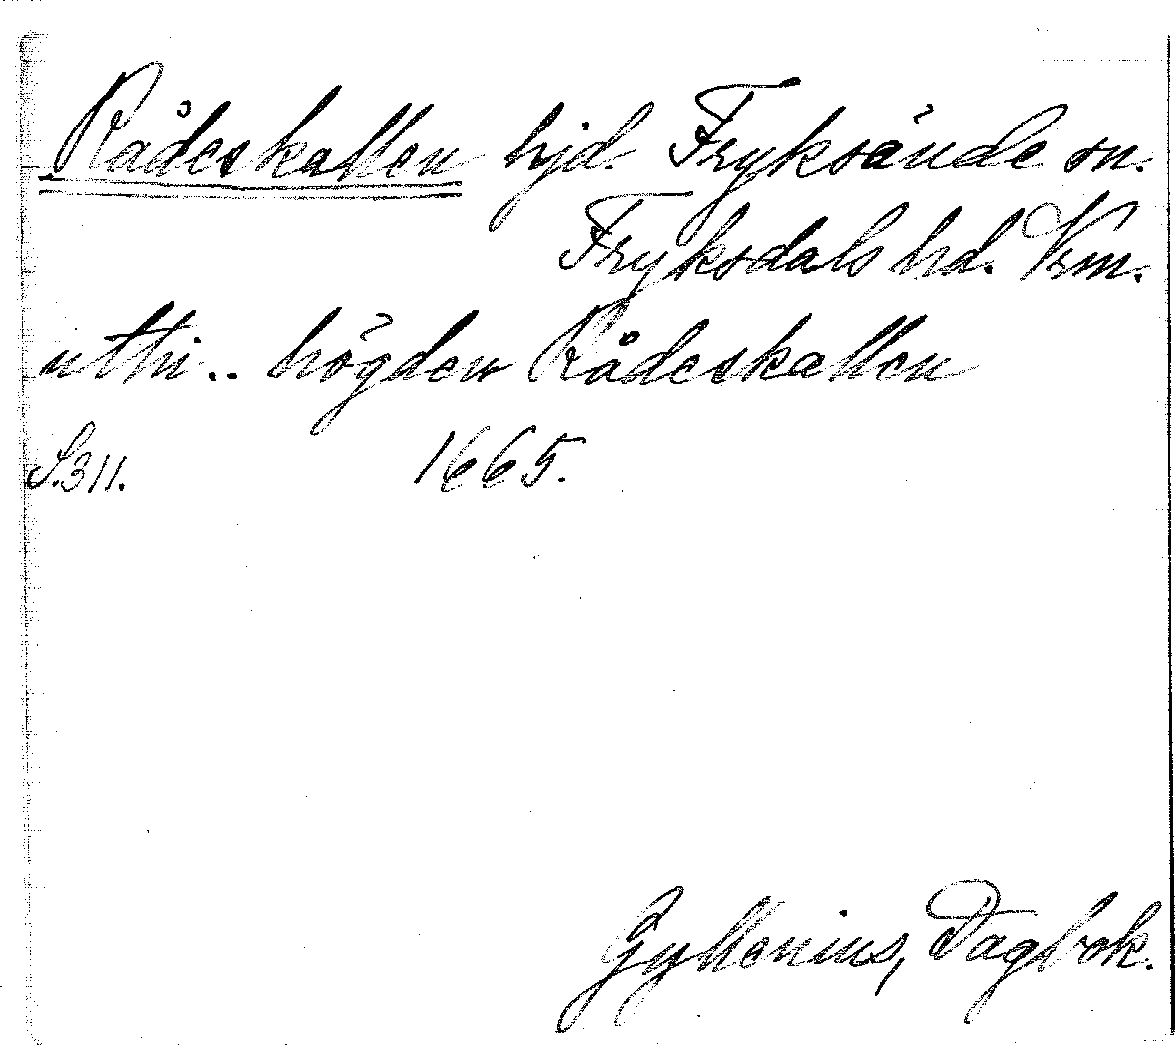 Rådeskallen hjd. Fryksände sn.
Fryksdals hd. Vrm.
uthi.. högden Rådeskallen
S.311. 1665.
Gyllenius, Dagbok.